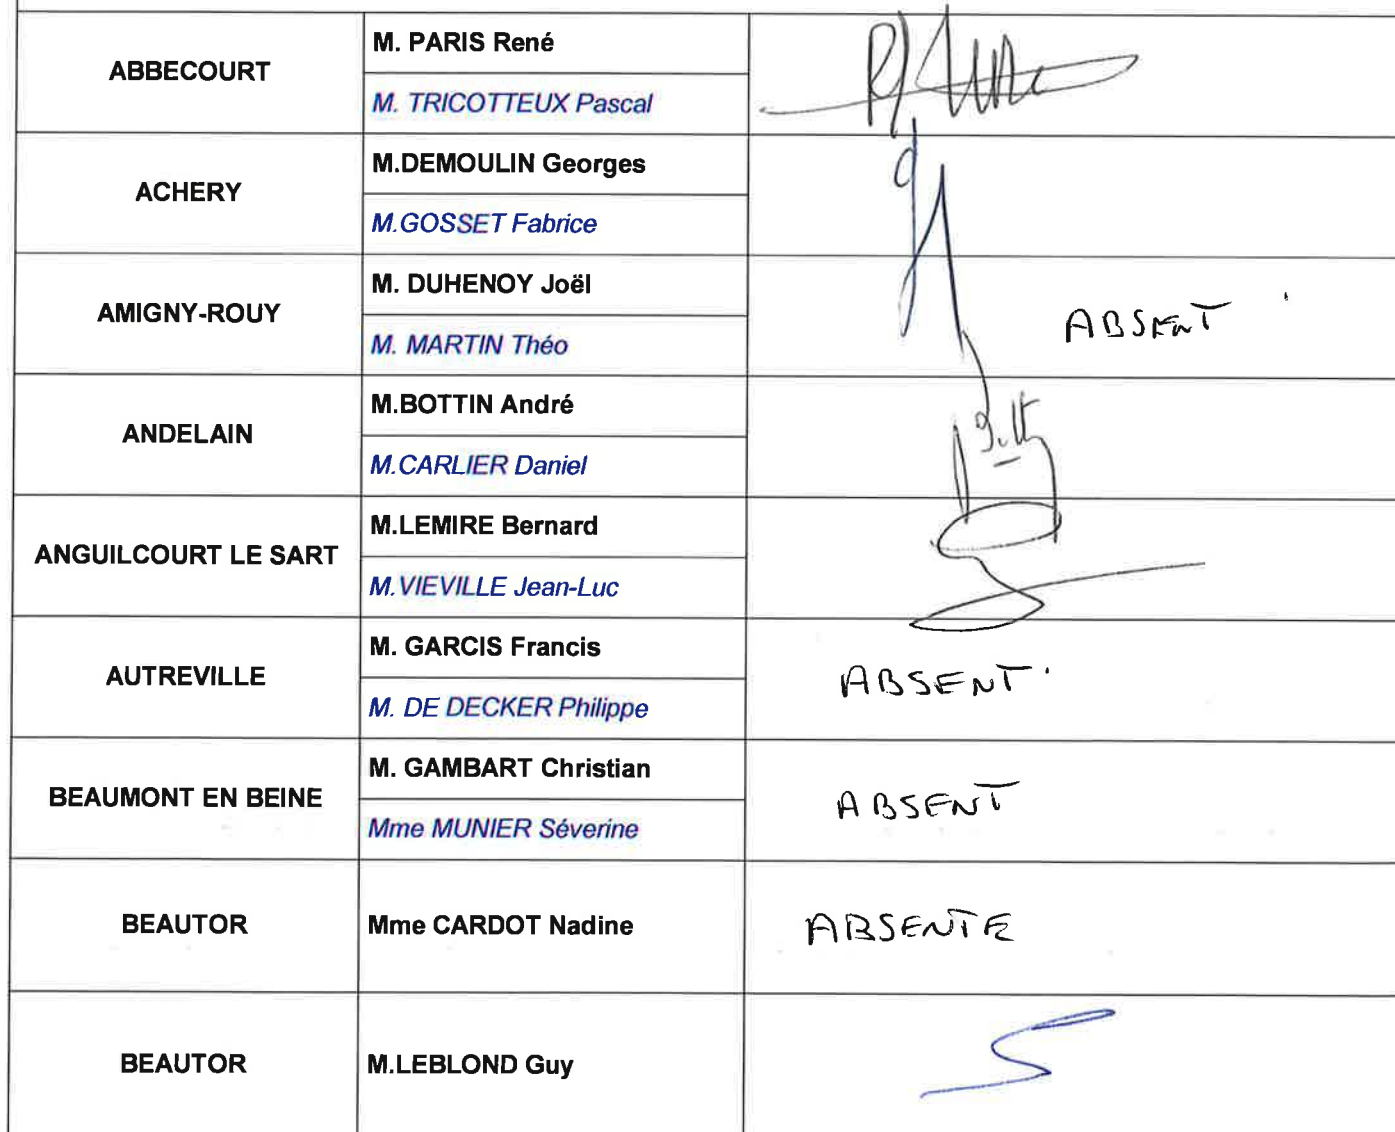 ABBECOURT
M. PARIS René
M. TRICOTTEUX Pascal
ACHERY
M.DEMOULIN Georges
M.GOSSET Fabrice
AMIGNY-ROUY
M. DUHENOY Joël
M. MARTIN Théo
ABSENT
ANDELAIN
M.BOTTIN André
M.CARLIER Daniel
ANGUILCOURT LE SART
M.LEMIRE Bernard
M.VIEVILLE Jean-Luc
AUTREVILLE
M. GARCIS Francis
M. DE DECKER Philippe
ABSENT
BEAUMONT EN BEINE
M. GAMBART Christian
Mme MUNIER Séverine
ABSENT
BEAUTOR
Mme CARDOT Nadine
ABSENTE
BEAUTOR
M.LEBLOND Guy